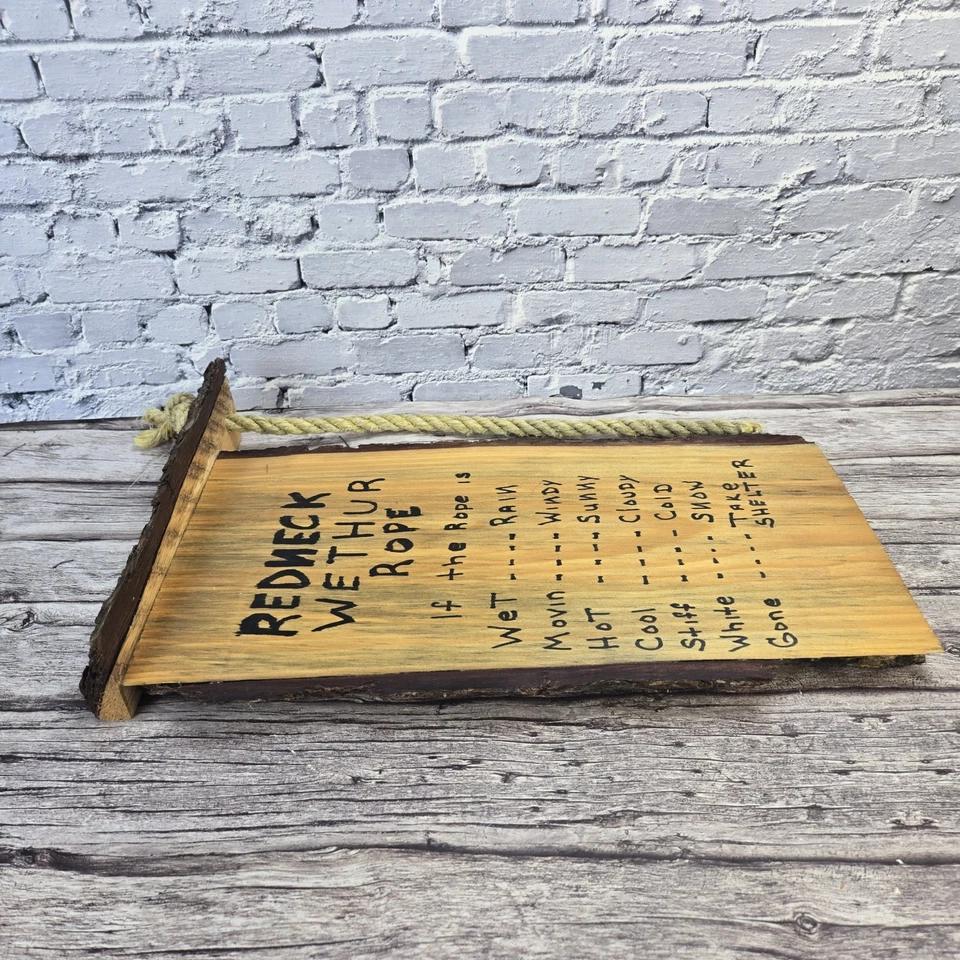 REDNECK
WETHUR
ROPE
If the Rope is
WeT ---- RAIN
Movin ---- WiNDY
HoT ---- SuNNY
Cool ---- ClouDY
Stiff ---- ColD
White ---- SNOW
Gone ---- TAKe
SHELTER